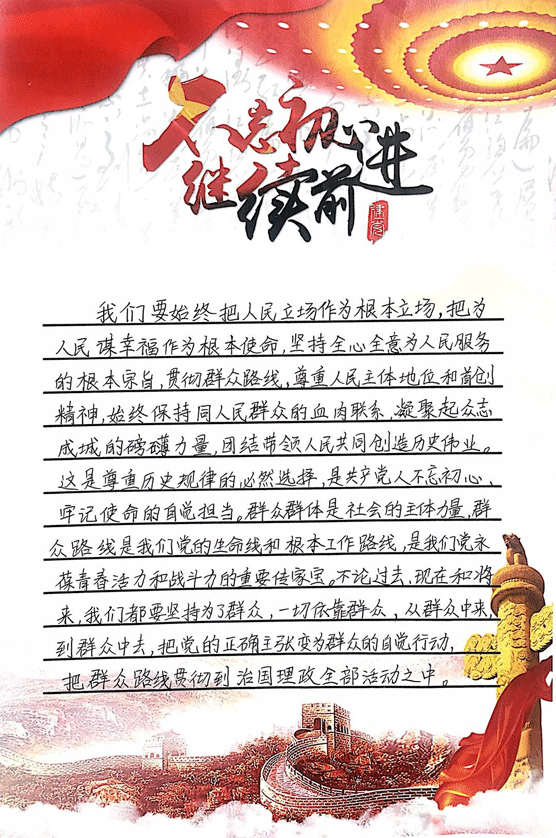 不忘初心
继续前进
建党
我们要始终把人民立场作为根本立场,把为
人民谋幸福作为根本使命,坚持全心全意为人民服务
的根本宗旨,贯彻群众路线,尊重人民主体地位和首创
精神,始终保持同人民群众的血肉联系,凝聚起众志
成城的磅礴力量,团结带领人民共同创造历史伟业。
这是尊重历史规律的必然选择,是共产党人不忘初心、
牢记使命的自觉担当。群众群体是社会的主体力量,群
众路线是我们党的生命线和根本工作路线,是我们党永
葆青春活力和战斗力的重要传家宝。不论过去、现在和将
来,我们都要坚持为了群众,一切依靠群众,从群众中来,
到群众中去,把党的正确主张变为群众的自觉行动,
把群众路线贯彻到治国理政全部活动之中。